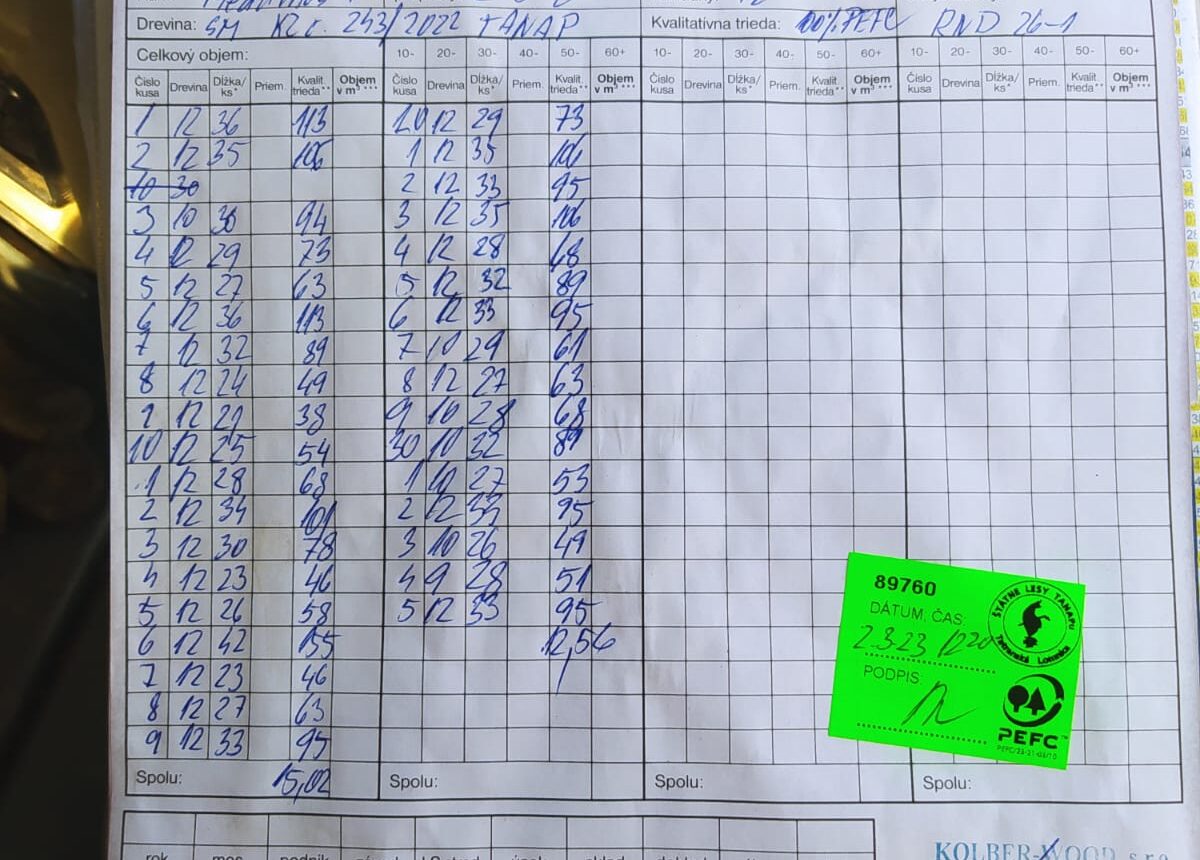 Drevina: SM KZ č. 243/2022 TANAP Kvalitatívna trieda: 100% PEFC RND 26-1
Celkový objem: 10- 20- 30- 40- 50- 60+ 10- 20- 30- 40- 50- 60+ 10- 20- 30- 40- 50- 60+
Číslo kusa Drevina Dĺžka/ks* Priem. Kvalit. trieda** Objem v m³*** Číslo kusa Drevina Dĺžka/ks* Priem. Kvalit. trieda** Objem v m³*** Číslo kusa Drevina Dĺžka/ks* Priem. Kvalit. trieda** Objem v m³*** Číslo kusa Drevina Dĺžka/ks* Priem. Kvalit. trieda** Objem v m³***
1 12 36 113 20 12 29 73
2 12 35 106 1 12 35 106
10 30 2 12 33 95
3 10 30 94 3 12 35 106
4 12 29 73 4 12 28 68
5 12 27 63 5 12 32 89
6 12 36 113 6 12 33 95
7 12 32 89 7 10 29 61
8 12 24 49 8 12 27 63
9 12 21 38 9 10 28 68
10 12 25 54 30 10 32 89
1 12 28 68 1 10 27 53
2 12 34 101 2 12 33 95
3 12 30 78 3 10 26 49
4 12 23 46 4 9 28 51
5 12 26 58 5 12 33 95
6 12 42 155 12,56
7 12 23 46
8 12 27 63
9 12 33 95
Spolu: 15,02 Spolu: Spolu: Spolu:
89760
DÁTUM, ČAS:
2.3.23 1220
PODPIS:
ŠTÁTNE LESY TANAPU
Tatranská Lomnica
PEFC™
KOLBER-WOOD s.r.o.